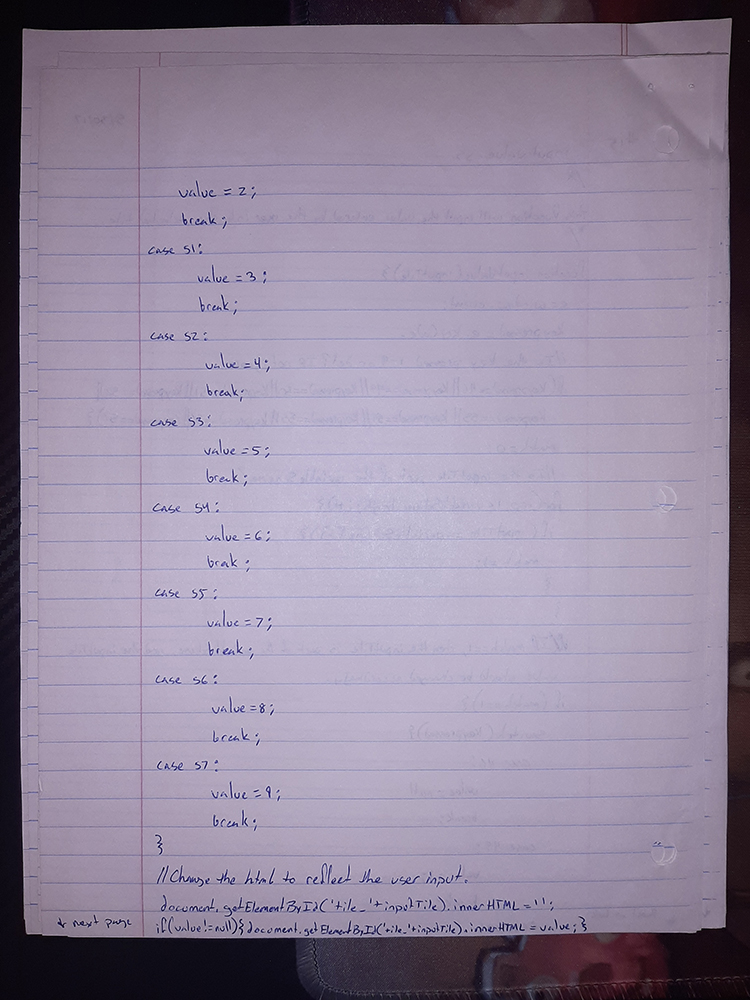 value = 2;
break;
case 51:
value = 3;
break;
case 52:
value = 4;
break;
case 53:
value = 5;
break;
case 54:
value = 6;
break;
case 55:
value = 7;
break;
case 56:
value = 8;
break;
case 57:
value = 9;
break;
}
//Change the html to reflect the user input.
document.getElementById('tile_'+inputTile).innerHTML = '';
↓ next page if(value!=null){document.getElementById('tile_'+inputTile).innerHTML = value;}